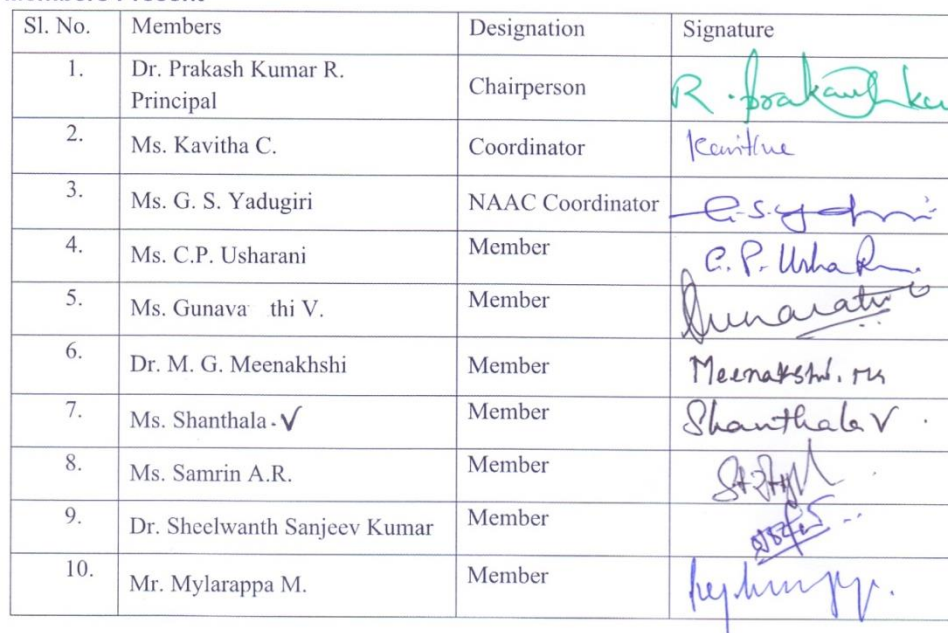 Sl. No. Members Designation Signature
1. Dr. Prakash Kumar R. Principal Chairperson R. Prakash Ku
2. Ms. Kavitha C. Coordinator Kavitha
3. Ms. G. S. Yadugiri NAAC Coordinator G.S.
4. Ms. C.P. Usharani Member C. P. Usha
5. Ms. Gunava thi V. Member Gunavathi
6. Dr. M. G. Meenakhshi Member Meenakshi. MG
7. Ms. Shanthala. V Member Shanthala V
8. Ms. Samrin A.R. Member
9. Dr. Sheelwanth Sanjeev Kumar Member
10. Mr. Mylarappa M. Member